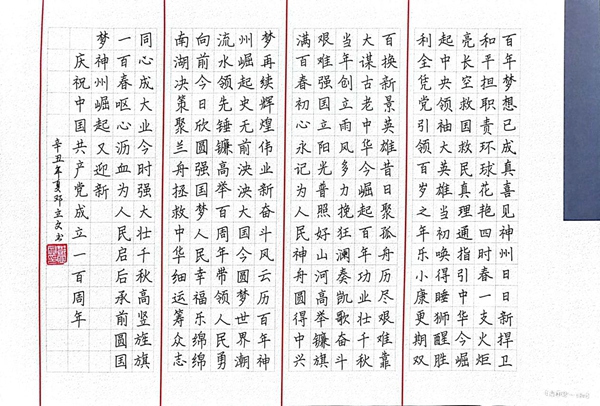 百年梦想已成真喜见神州日日新捍卫
和平担职责环球花艳四时春一支火炬
亮长空救国救民真理通指引中华今崛
起中央领袖大英雄当初唤得睡狮醒胜
利全凭党引领百岁之年乐小康更期双
百换新景英雄昔日聚孤舟历尽艰难靠
大谋古老中华今崛起百年功业壮千秋
当年创立雨风多力挽狂澜奏凯歌奋斗
艰难强国立阳光普照好山河高举镰旗
满百春初心永记为人民神舟圆得中兴
梦再续辉煌伟业新奋斗风云历百年神
州崛起史无前泱泱大国今圆梦世界潮
流水领先锤镰高举百周年带领人民勇
向前今日欣圆强国梦人民幸福乐绵绵
南湖决策聚兰舟拯救中华细运筹众志
同心成大业今时强大壮千秋高竖旌旗
一百春呕心沥血为人民启后承前圆国
梦神州崛起又迎新
庆祝中国共产党成立一百周年
辛丑年夏邓立文书